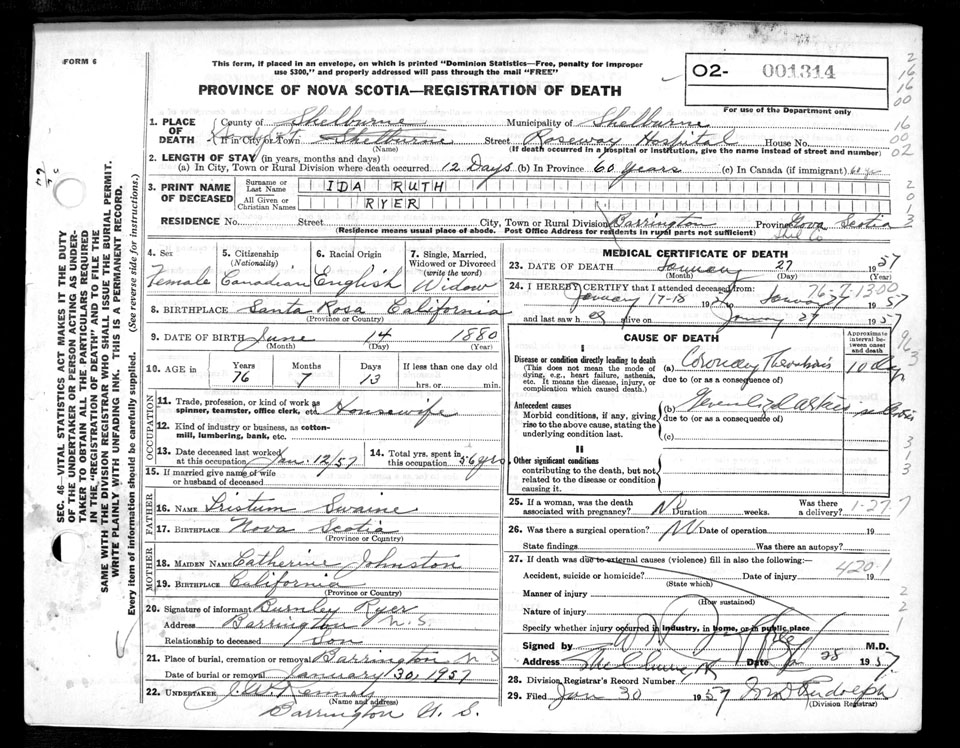 FORM 6
This form, if placed in an envelope, on which is printed "Dominion Statistics—Free, penalty for improper
use $300," and properly addressed will pass through the mail "FREE"
O2- 001314
PROVINCE OF NOVA SCOTIA—REGISTRATION OF DEATH
For use of the Department only
1. PLACE OF DEATH
County of Shelburne Municipality of Shelburne
If in City or Town Shelburne Street Roseway Hospital House No.
(Name) (If death occurred in a hospital or institution, give the name instead of street and number)
2. LENGTH OF STAY (in years, months and days)
(a) In City, Town or Rural Division where death occurred 12 Days (b) In Province 60 Years (c) In Canada (if immigrant) 60 yrs
3. PRINT NAME OF DECEASED
Surname or Last Name IDA RUTH
All Given or Christian Names RYER
RESIDENCE No. Street City, Town or Rural Division Barrington Province Nova Scotia
(Residence means usual place of abode. Post Office Address for residents in rural parts not sufficient) Shel Co
4. Sex 5. Citizenship (Nationality) 6. Racial Origin 7. Single, Married, Widowed or Divorced (write the word)
Female Canadian English Widow
8. BIRTHPLACE Santa Rosa California
(Province or Country)
9. DATE OF BIRTH June 14 1880
(Month) (Day) (Year)
10. AGE in Years Months Days If less than one day old
76 7 13 hrs. or min.
OCCUPATION
11. Trade, profession, or kind of work as
spinner, teamster, office clerk, etc. Housewife
12. Kind of industry or business, as cotton-
mill, lumbering, bank, etc.
13. Date deceased last worked at this occupation Jan. 12/57 14. Total yrs. spent in this occupation 56 yrs.
15. If married give name of wife
or husband of deceased
FATHER
16. NAME Tristum Swaine
17. BIRTHPLACE Nova Scotia
(Province or Country)
MOTHER
18. MAIDEN NAME Catherine Johnston
19. BIRTHPLACE California
(Province or Country)
20. Signature of informant Burnley Ryer
Address Barrington N.S.
Relationship to deceased Son
21. Place of burial, cremation or removal Barrington N S
Date of burial or removal January 30, 1957
22. UNDERTAKER
(Name and address)
Barrington N. S.
MEDICAL CERTIFICATE OF DEATH
23. DATE OF DEATH January 27 1957
(Month) (Day) (Year)
24. I HEREBY CERTIFY that I attended deceased from:
76-7-1300
January 17-18 1957 to January 27 1957
and last saw her alive on January 27 1957
CAUSE OF DEATH
Approximate interval between onset and death
I
Disease or condition directly leading to death
(This does not mean the mode of
dying, e.g., heart failure, asthenia,
etc. It means the disease, injury, or
complication which caused death.)
(a) Coronary Thrombosis 10 days
due to (or as a consequence of)
Antecedent causes
Morbid conditions, if any, giving
rise to the above cause, stating the
underlying condition last.
(b)
due to (or as a consequence of)
(c)
II
Other significant conditions
contributing to the death, but not
related to the disease or condition
causing it.
25. If a woman, was the death associated with pregnancy? No Duration weeks. Was there a delivery?
1-27-7
26. Was there a surgical operation? No Date of operation 19
State findings Was there an autopsy?
27. If death was due to external causes (violence) fill in also the following:—
420.1
Accident, suicide or homicide? Date of injury 19
(State which)
Manner of injury
(How sustained)
Nature of injury
Specify whether injury occurred in industry, in home, or in public place
Signed by M.D.
Address Shelburne Date Jan 28 1957.
28. Division Registrar's Record Number
29. Filed Jan 30 1957 Rudolph
(Division Registrar)
SEC. 46—VITAL STATISTICS ACT MAKES IT THE DUTY
OF THE UNDERTAKER OR PERSON ACTING AS UNDER-
TAKER TO OBTAIN ALL THE PARTICULARS REQUIRED
IN THE "REGISTRATION OF DEATH" AND TO FILE THE
SAME WITH THE DIVISION REGISTRAR WHO SHALL ISSUE THE BURIAL PERMIT.
WRITE PLAINLY WITH UNFADING INK. THIS IS A PERMANENT RECORD.
Every item of information should be carefully supplied. (See reverse side for instructions.)